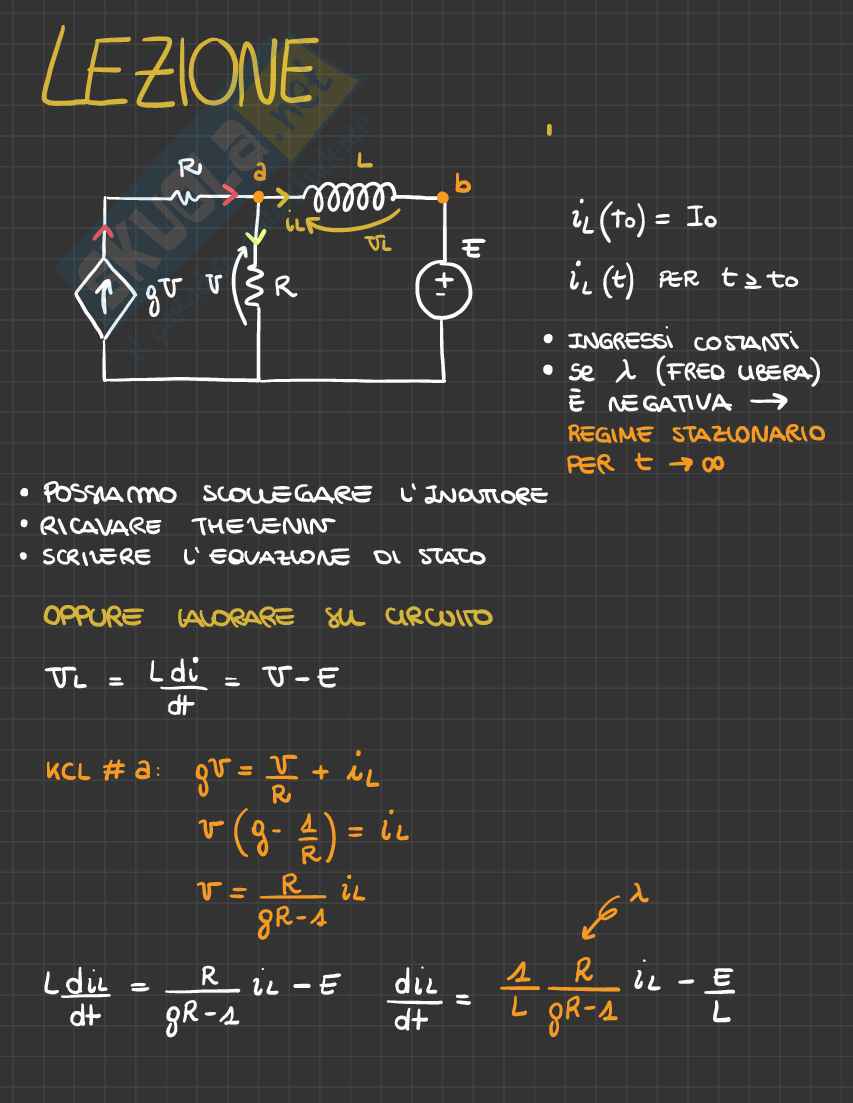 LEZIONE
R
a
L
b
iL
vL
gv
v
R
E
+
-
iL(t0) = I0
iL(t) PER t ≥ t0
• INGRESSI COSTANTI
• SE λ (FREQ LIBERA)
È NEGATIVA →
REGIME STAZIONARIO
PER t → ∞
• POSSIAMO SCOLLEGARE L'INDUTTORE
• RICAVARE THEVENIN
• SCRIVERE L'EQUAZIONE DI STATO
OPPURE LAVORARE SUL CIRCUITO
vL = L di/dt = v - E
KCL # a: gv = v/R + iL
v (g - 1/R) = iL
v = R/(gR-1) iL
λ
L diL/dt = R/(gR-1) iL - E diL/dt = 1/L R/(gR-1) iL - E/L